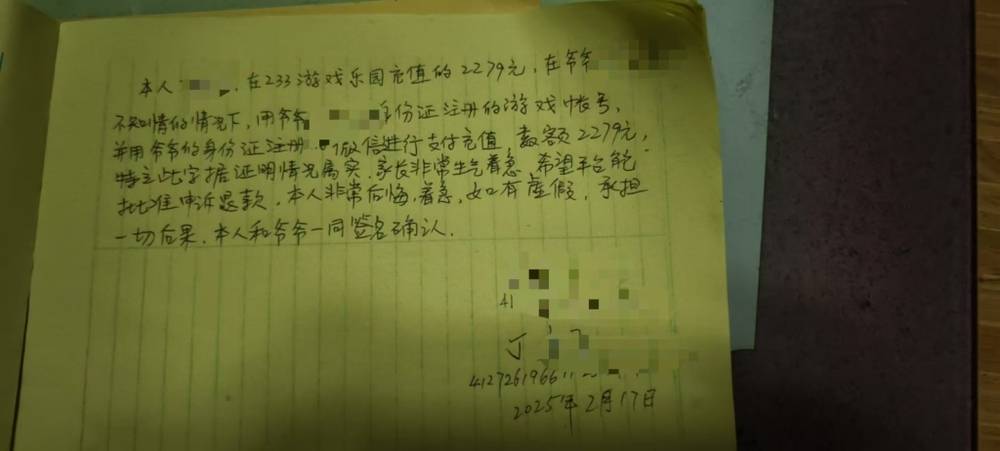 本人 , 在233游戏乐园充值的2279元, 在爷爷
不知情的情况下, 用爷爷 身份证注册的游戏帐号,
并用爷爷的身份证注册 微信进行支付充值, 数额2279元,
特立此字据证明情况属实, 家长非常生气着急, 希望平台能
批准申诉退款, 本人非常后悔, 着急, 如有虚假, 承担
一切后果, 本人和爷爷一同签名确认.
41
丁
4127261966
2025年2月17日